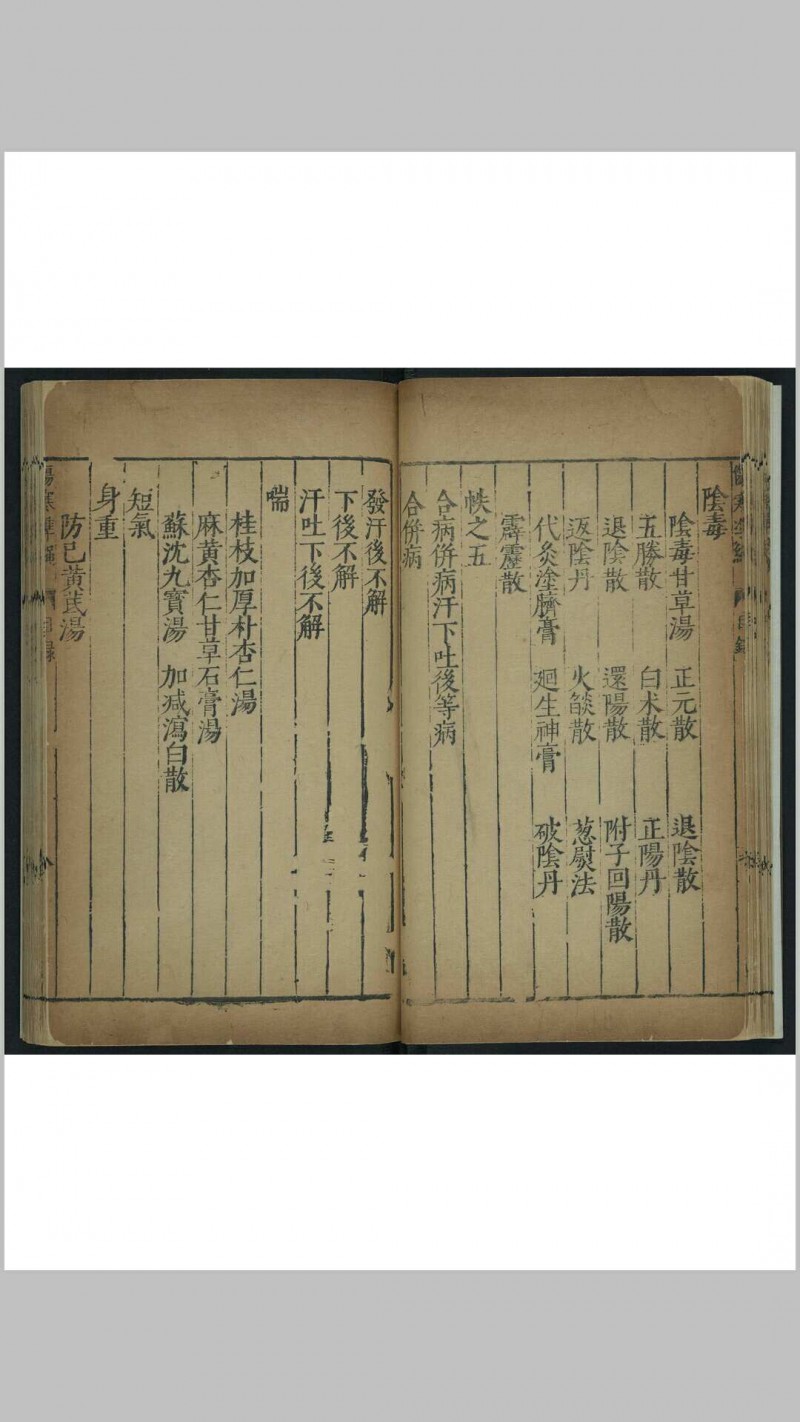 陰毒
陰毒甘草湯 正元散 退陰散
五勝散 白朮散 正陽丹
退陰散 還陽散 附子回陽散
返陰丹 火燄散 葱熨法
代灸塗臍膏 廻生神膏 破陰丹
霹靂散
帙之五
合病併病汗下吐後等病
合併病
發汗後不解
下後不解
汗吐下後不解
喘
桂枝加厚朴杏仁湯
麻黃杏仁甘草石膏湯
蘇沈九寶湯 加減瀉白散
短氣
身重
防己黃芪湯